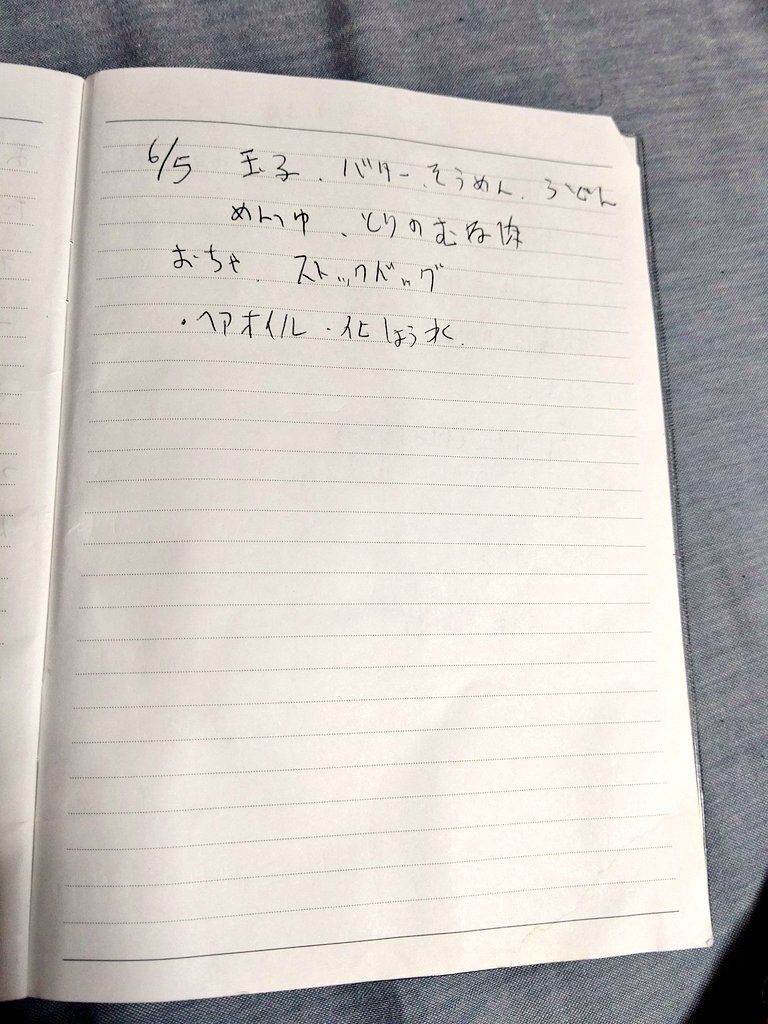 6/5 玉子、バター、そうめん、うどん
めんつゆ、とりのむね肉
おちゃ、ストックバッグ
・ヘアオイル・化しょう水